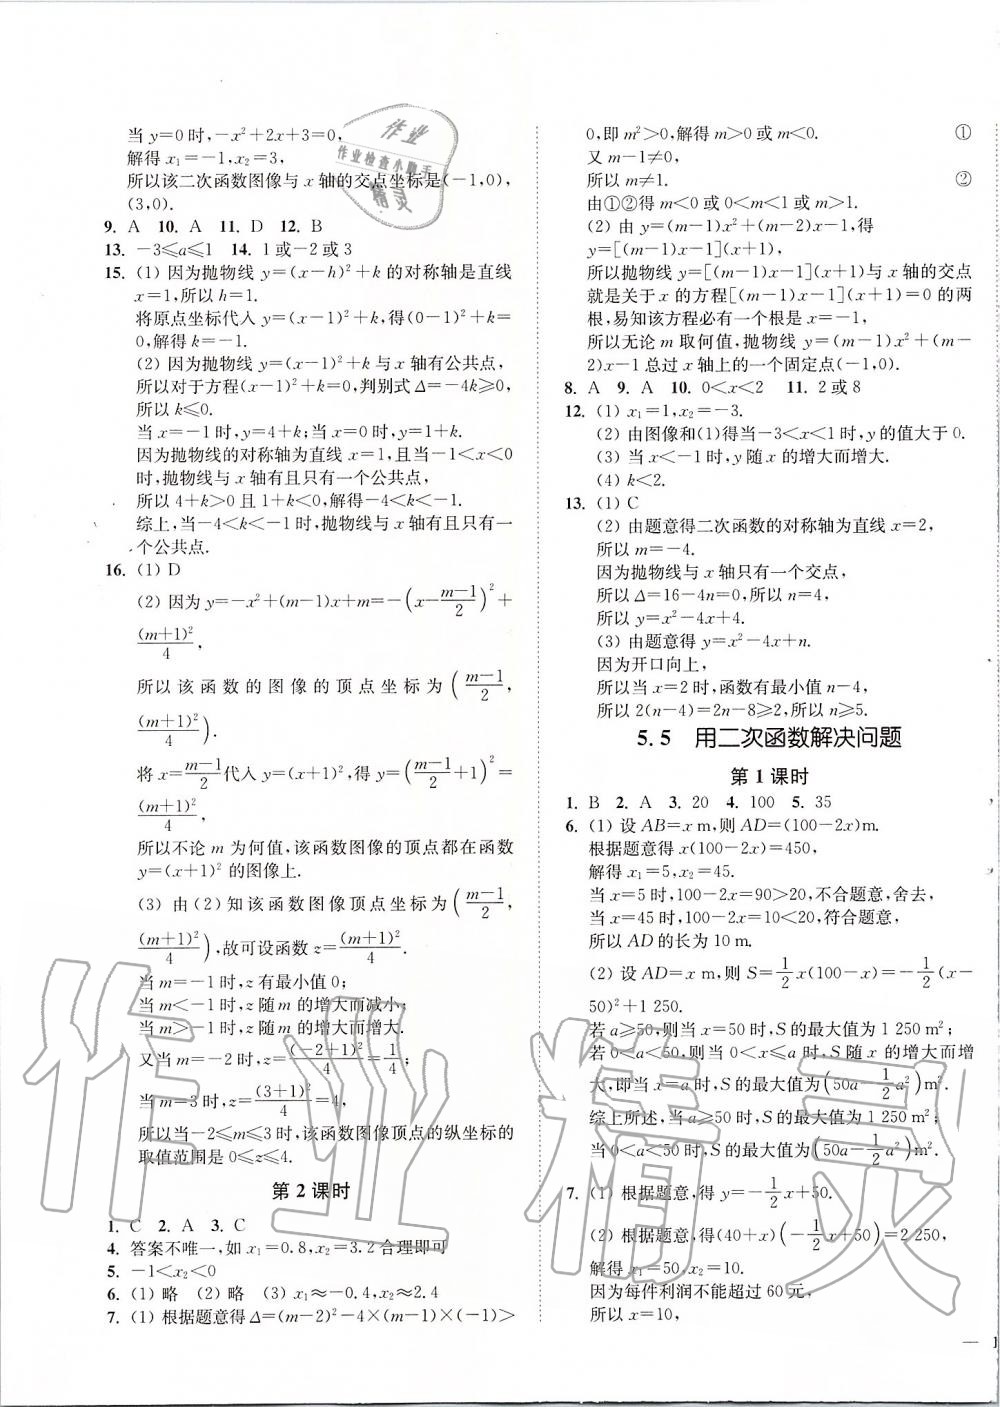 作业
作业检查小助手
精灵
当 y=0 时,-x²+2x+3=0,
解得 x₁=-1,x₂=3,
所以该二次函数图像与 x 轴的交点坐标是(-1,0),
(3,0).
9. A 10. A 11. D 12. B
13. -3≤a≤1 14. 1 或-2 或 3
15. (1) 因为抛物线 y=(x-h)²+k 的对称轴是直线
x=1,所以 h=1.
将原点坐标代入 y=(x-1)²+k,得(0-1)²+k=
0,解得 k=-1.
(2) 因为抛物线 y=(x-1)²+k 与 x 轴有公共点,
所以对于方程(x-1)²+k=0,判别式 Δ=-4k≥0,
所以 k≤0.
当 x=-1 时,y=4+k;当 x=0 时,y=1+k.
因为抛物线的对称轴为直线 x=1,且当-1<x<0
时,抛物线与 x 轴有且只有一个公共点,
所以 4+k>0 且 1+k<0,解得-4<k<-1.
综上,当-4<k<-1 时,抛物线与 x 轴有且只有一
个公共点.
16. (1) D
(2) 因为 y=-x²+(m-1)x+m=-(x-(m-1)/2)²+
(m+1)²/4,
所以该函数的图像的顶点坐标为((m-1)/2,
(m+1)²/4).
将 x=(m-1)/2代入 y=(x+1)²,得 y=((m-1)/2+1)²=
(m+1)²/4,
所以不论 m 为何值,该函数图像的顶点都在函数
y=(x+1)² 的图像上.
(3) 由(2)知该函数图像顶点坐标为((m-1)/2,
(m+1)²/4),故可设函数 z=(m+1)²/4.
当 m=-1 时,z 有最小值 0;
当 m<-1 时,z 随 m 的增大而减小;
当 m>-1 时,z 随 m 的增大而增大.
又当 m=-2 时,z=(-2+1)²/4=1/4;
当 m=3 时,z=(3+1)²/4=4,
所以当-2≤m≤3 时,该函数图像顶点的纵坐标的
取值范围是 0≤z≤4.
第 2 课时
1. C 2. A 3. C
4. 答案不唯一,如 x₁=0.8,x₂=3.2 合理即可
5. -1<x₂<0
6. (1) 略 (2) 略 (3) x₁≈-0.4,x₂≈2.4
7. (1) 根据题意得 Δ=(m-2)²-4×(m-1)×(-1)>
0,即 m²>0,解得 m>0 或 m<0. ①
又 m-1≠0,
所以 m≠1. ②
由①②得 m<0 或 0<m<1 或 m>1.
(2) 由 y=(m-1)x²+(m-2)x-1,得
y=[(m-1)x-1](x+1),
所以抛物线 y=[(m-1)x-1](x+1)与 x 轴的交点
就是关于 x 的方程[(m-1)x-1](x+1)=0 的两
根,易知该方程必有一个根是 x=-1,
所以无论 m 取何值,抛物线 y=(m-1)x²+(m-
2)x-1 总过 x 轴上的一个固定点(-1,0).
8. A 9. A 10. 0<x<2 11. 2 或 8
12. (1) x₁=1,x₂=-3.
(2) 由图像和(1)得当-3<x<1 时,y 的值大于 0.
(3) 当 x<-1 时,y 随 x 的增大而增大.
(4) k<2.
13. (1) C
(2) 由题意得二次函数的对称轴为直线 x=2,
所以 m=-4.
因为抛物线与 x 轴只有一个交点,
所以 Δ=16-4n=0,所以 n=4,
所以 y=x²-4x+4.
(3) 由题意得 y=x²-4x+n.
因为开口向上,
所以当 x=2 时,函数有最小值 n-4,
所以 2(n-4)=2n-8≥2,所以 n≥5.
5.5 用二次函数解决问题
第 1 课时
1. B 2. A 3. 20 4. 100 5. 35
6. (1) 设 AB=x m,则 AD=(100-2x)m.
根据题意得 x(100-2x)=450,
解得 x₁=5,x₂=45.
当 x=5 时,100-2x=90>20,不合题意,舍去,
当 x=45 时,100-2x=10<20,符合题意,
所以 AD 的长为 10 m.
(2) 设 AD=x m,则 S=1/2x(100-x)=-1/2(x-
50)²+1 250.
若 a≥50,则当 x=50 时,S 的最大值为 1 250 m²;
若 0<a<50,则当 0<x≤a 时,S 随 x 的增大而增
大,即当 x=a 时,S 的最大值为(50a-1/2a²)m².
综上所述,当 a≥50 时,S 的最大值为 1 250 m²;
当 0<a<50 时,S 的最大值为(50a-1/2a²)m².
7. (1) 根据题意,得 y=-1/2x+50.
(2) 根据题意,得(40+x)(-1/2x+50)=2 250,
解得 x₁=50,x₂=10.
因为每件利润不能超过 60 元,
所以 x=10,
— 1
作业精灵